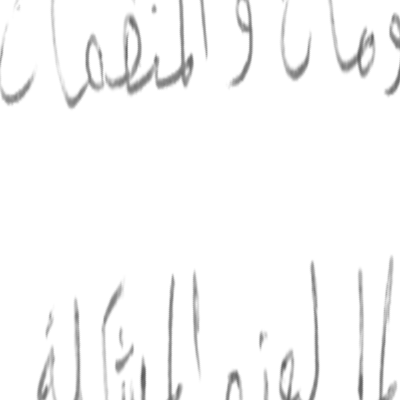 ومات و المنظمات
لهذه المشكلة